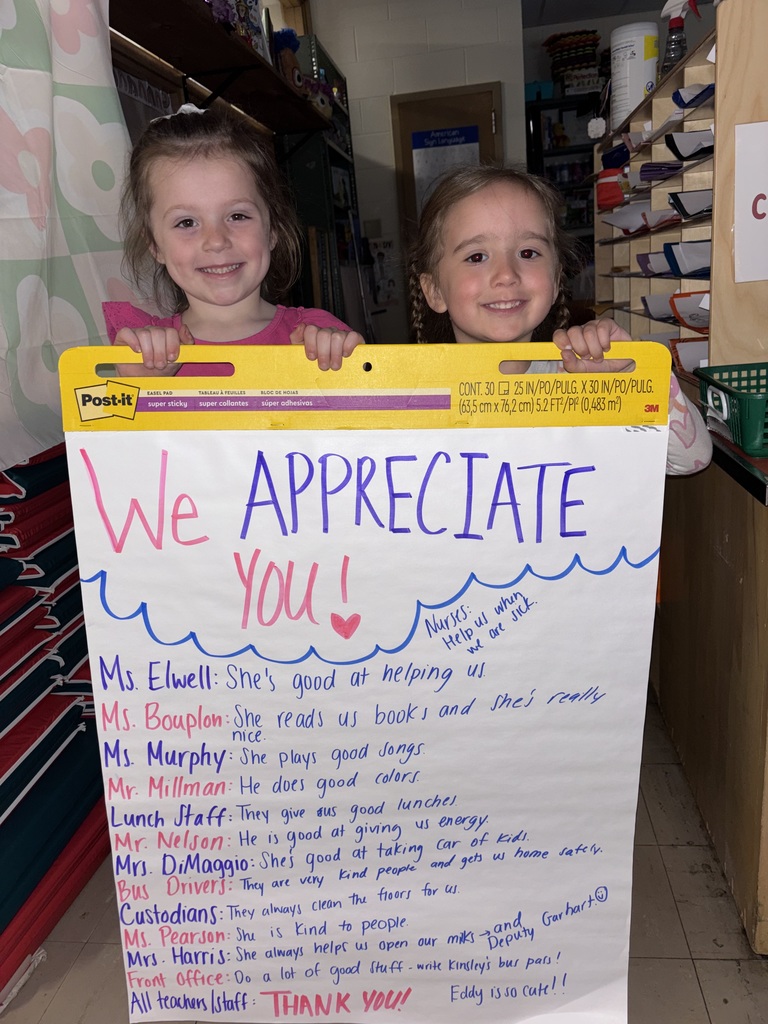 American
Sign Language
C
Post-it
EASEL PAD TABLEAU À FEUILLES BLOC DE HOJAS
super sticky super collantes súper adhesivas
CONT. 30 25 IN/PO/PULG. X 30 IN/PO/PULG.
(63,5 cm x 76,2 cm) 5.2 FT²/PI² (0,483 m²)
3M
We APPRECIATE
YOU!
Nurses:
Help us when
we are sick.
Ms. Elwell: She's good at helping us.
Ms. Bouplon: She reads us books and she's really
nice.
Ms. Murphy: She plays good songs.
Mr. Millman: He does good colors.
Lunch Staff: They give us good lunches.
Mr. Nelson: He is good at giving us energy.
Mrs. DiMaggio: She's good at taking car of kids.
Bus Drivers: They are very kind people and gets us home safely.
Custodians: They always clean the floors for us.
Ms. Pearson: She is kind to people.
Mrs. Harris: She always helps us open our milks → and
Deputy Garhart.
Front Office: Do a lot of good stuff - write Kinsley's bus pass!
All teachers/staff: THANK YOU! Eddy is so cute!!